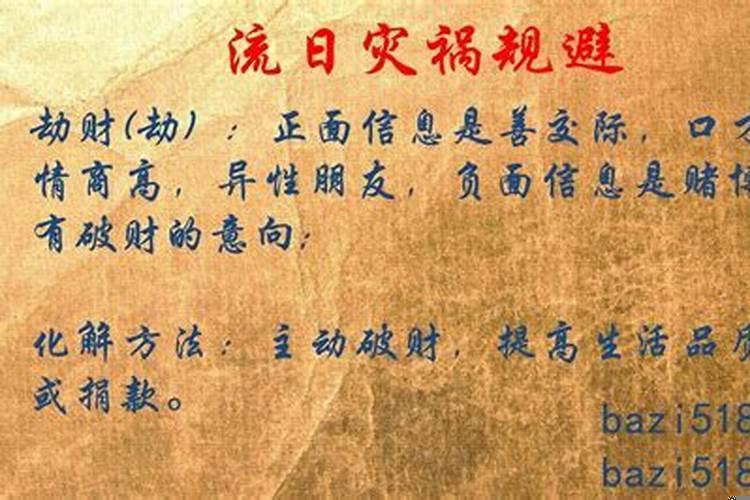 流日灾祸规避
劫财(劫)：正面信息是善交际，口
情商高，异性朋友，负面信息是赌
有破财的意向；
化解方法：主动破财，提高生活品
或捐款。
bazi518
bazi518